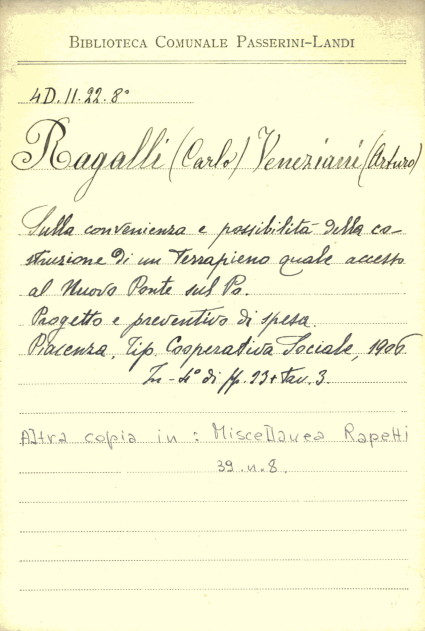 BIBLIOTECA COMUNALE PASSERINI-LANDI
4D.11.22.8°
Ragalli (Carlo) Veneziani (Arturo)
Sulla convenienza e possibilità della co-
struzione di un Terrapieno quale accesso
al Nuovo Ponte sul Po.
Progetto e preventivo di spesa
Piacenza, Tip. Cooperativa Sociale, 1906
In-4° di pp. 23 + Tav. 3.
Altra copia in : Miscellanea Rapetti
39.n.8.